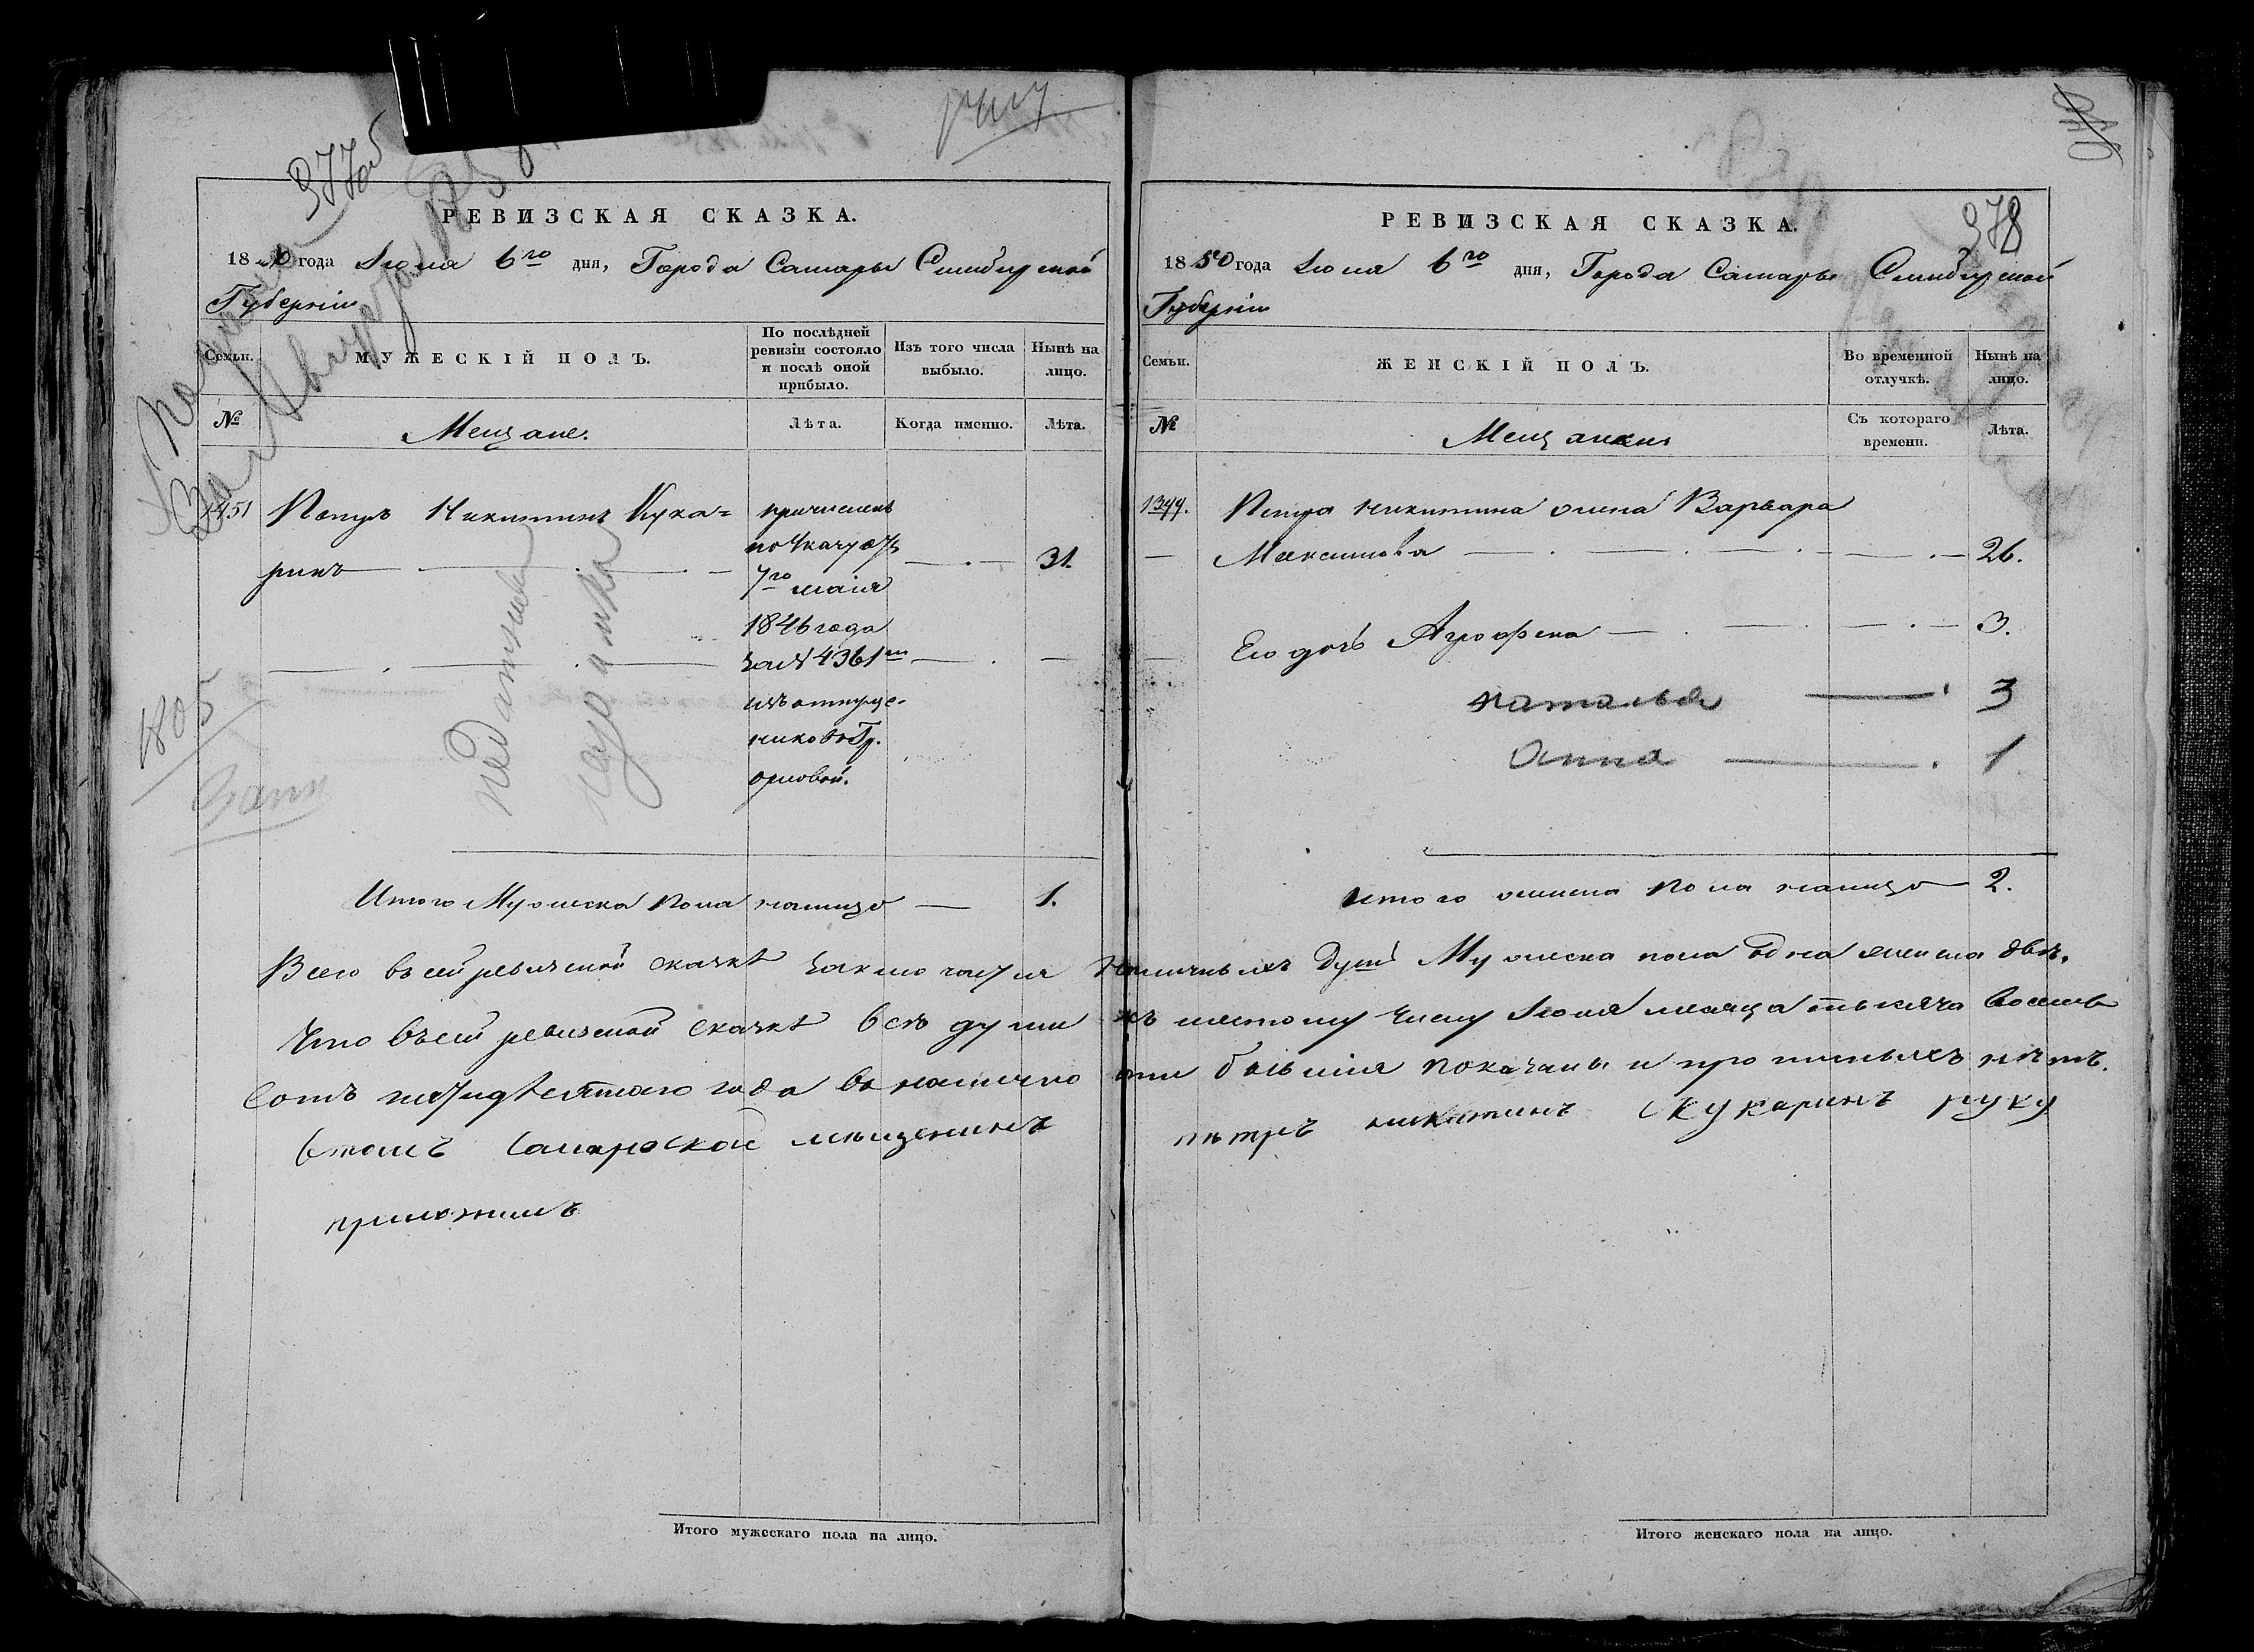 377об
РЕВИЗСКАЯ СКАЗКА.
1850 года Июня 6го дня, Города Самары Симбирской
Губернии
Семьи.
МУЖЕСКІЙ ПОЛЪ.
По послѣдней ревизіи состояло и послѣ оной прибыло.
Изъ того числа выбыло.
Нынѣ на лицо.
№
Мещане.
Лѣта.
Когда именно.
Лѣта.
1451
Петръ Никитинъ Кука=
ринъ
31.
причисленъ
по Указу
7го маія
1846 года
за № 4361м
изъ отпуще-
никовъ Гр.
орловой.
1805
Итого Мужеска пола налицо — 1.
378
РЕВИЗСКАЯ СКАЗКА.
1850 года Июня 6го дня, Города Самары Симбирской
Губерніи
Семьи.
ЖЕНСКІЙ ПОЛЪ.
Во временной отлучкѣ.
Нынѣ на лицо.
№
Мещанки
Съ котораго времени.
Лѣта.
Петра Никитина жена Варвара
Максимова 26.
Его дочь Агрофена 3.
наталья 3
Анна 1
итого женска пола налицо — 2.
Всего въ сей ревизской сказкѣ заключается Наличныхъ душъ Мужеска пола одна женска двѣ.
Что въ сей ревизской сказкѣ всѣ души къ шестому числу Июня месяца тысяча восемь
сотъ пятидесятаго года въ налично показаны и нѣтъ.
втомъ самарской мещенинъ петръ никитинъ кукаринъ руку
приложилъ
Итого мужескаго пола на лицо.
Итого женскаго пола на лицо.